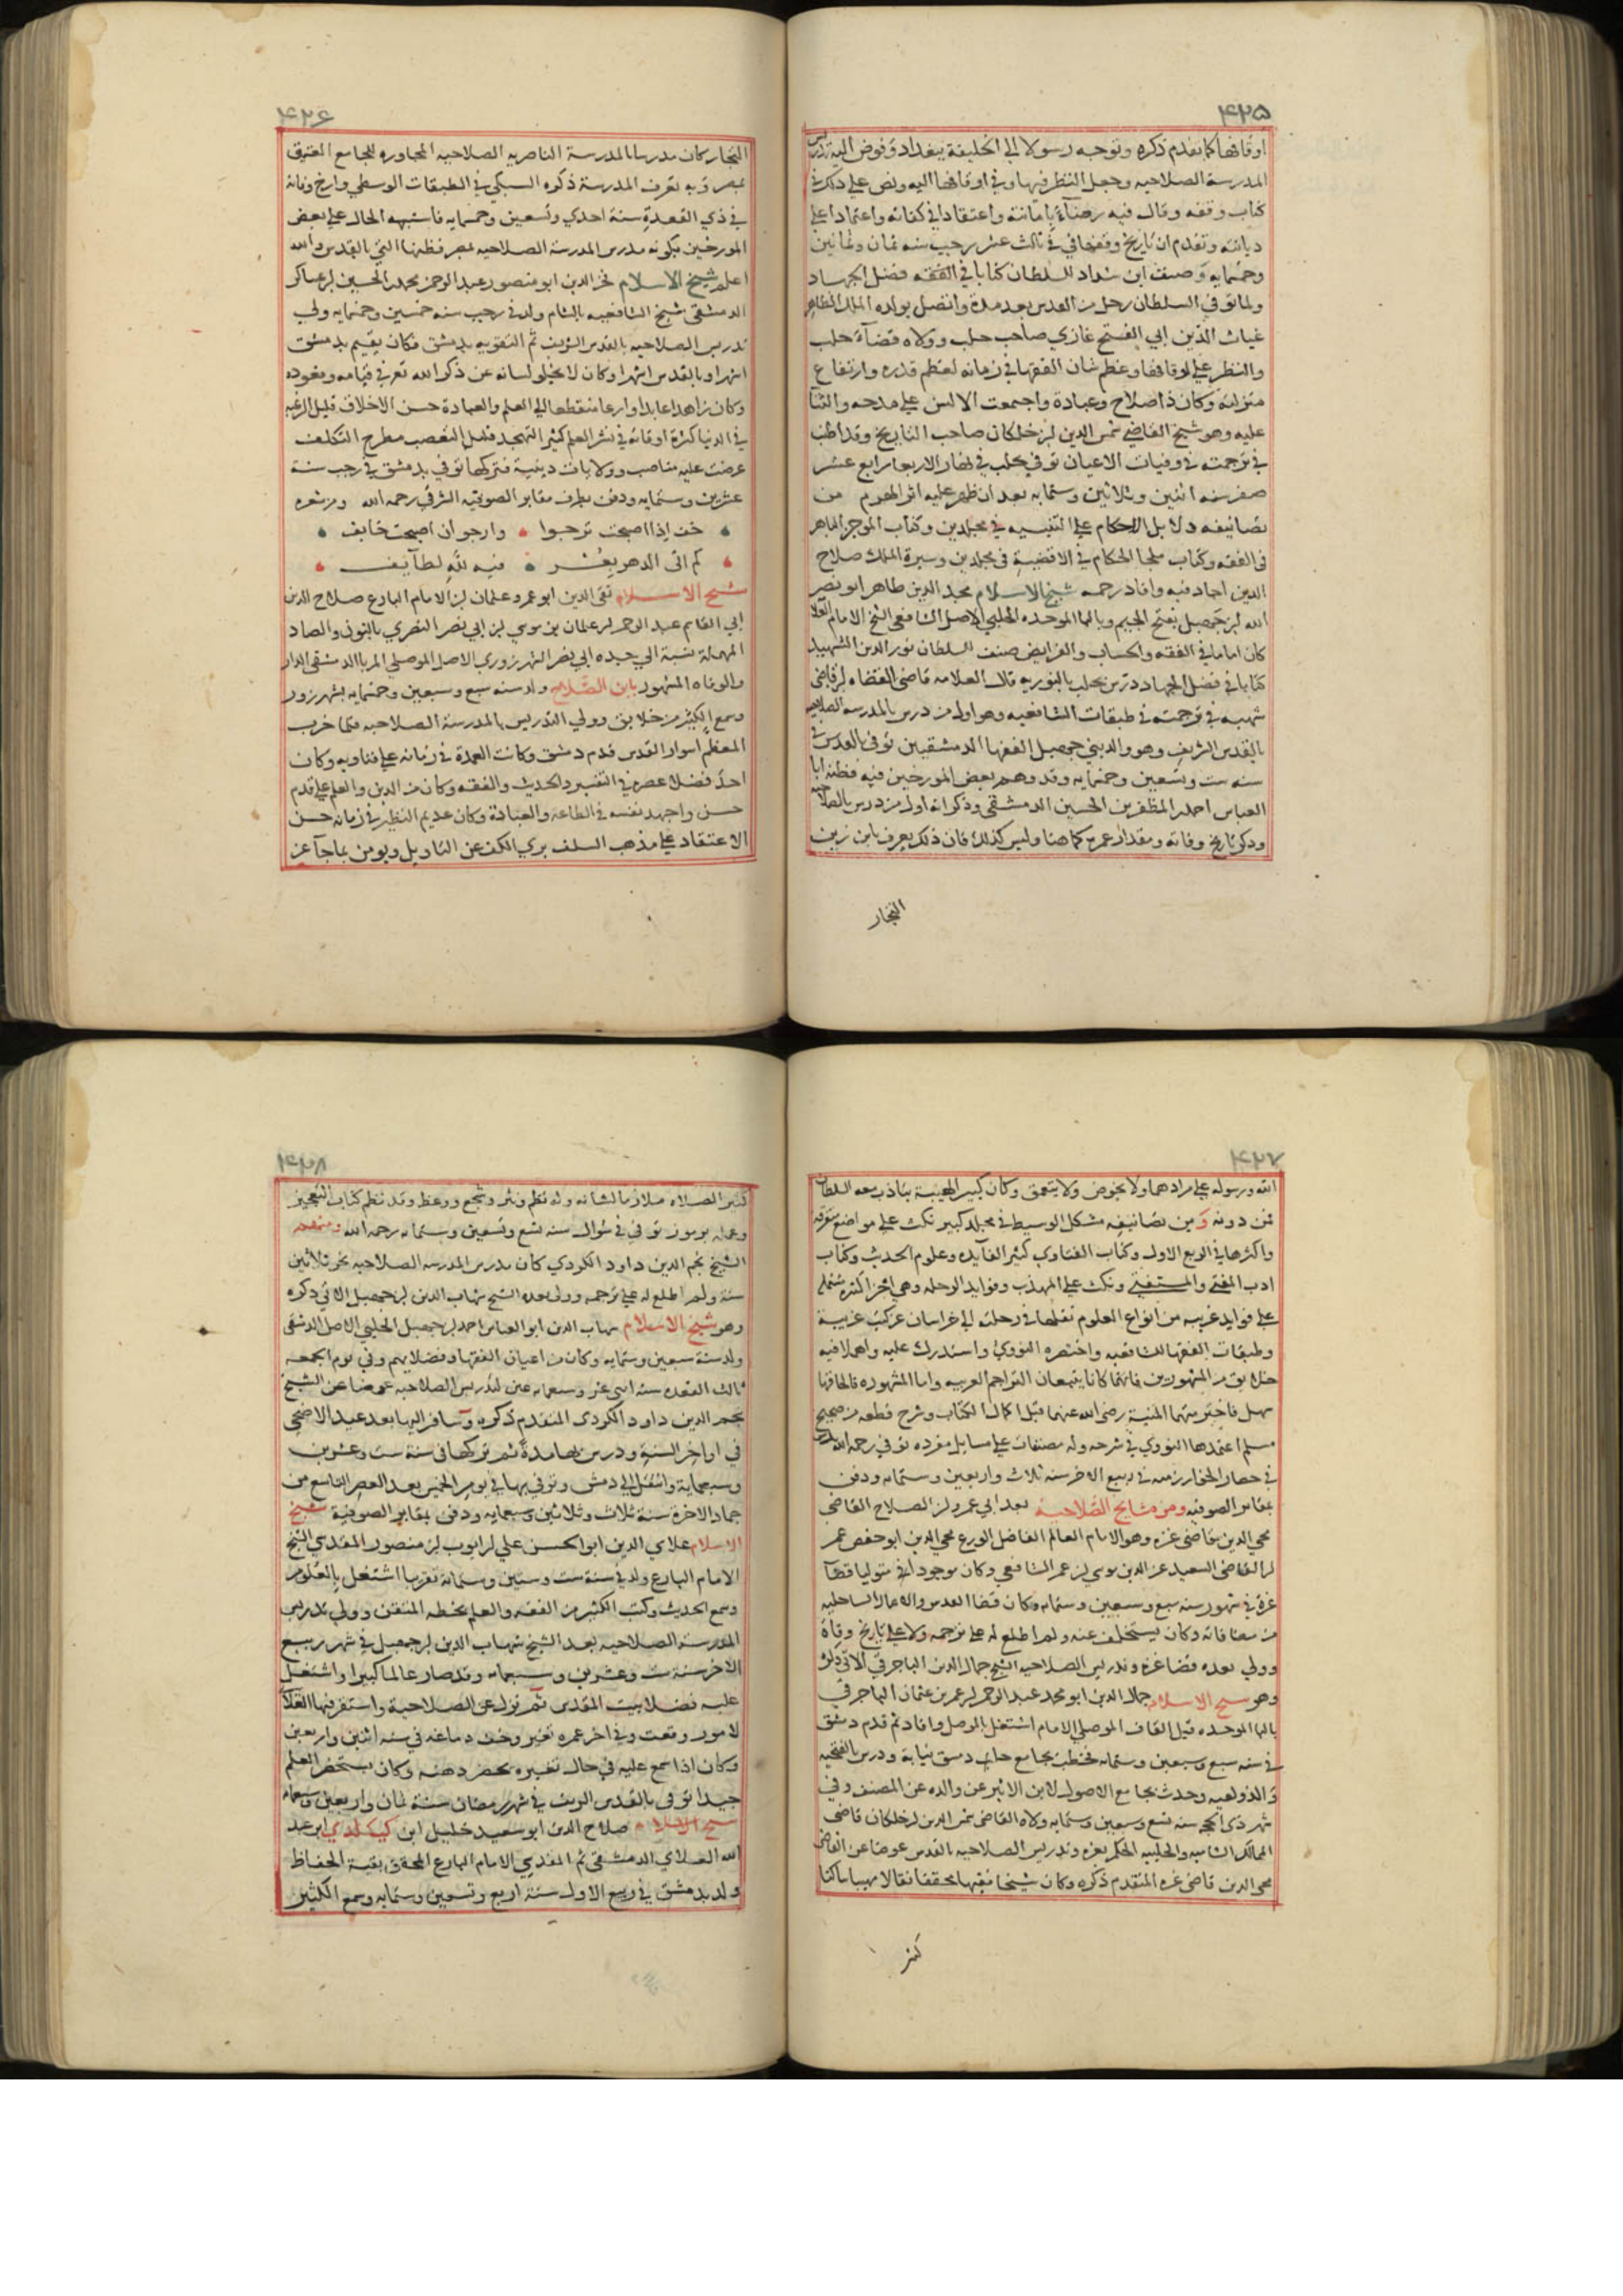 ٤٢٥
اوقافها كما تقدم ذكره وتوجه رسولا الى الخليفة ببغداد وفوض اليه تدريس
المدرسة الصلاحيه وجعل النظر فيها وفي اوقافها اليه ونص على ذلك في
كتاب وقفه وقال فيه رضآء بامانته واعتقادا في كفاته واعتمادا على
ديانته وتقدم ان تاريخ وقفها في ثالث عشر رجب سنه ثمان وثمانين
وخمسمايه وصنف ابن شداد للسلطان كتابا في الفقه فضل الجهاد
ولما توفي السلطان رحل من القدس بعد مدة واتصل بولده الملك الظاهر
غياث الدين ابي الفتح غازي صاحب حلب وولاه قضآء حلب
والنظر على اوقافها وعظم شان الفقها في زمانه لعظم قدره وارتفاع
منزلته وكان ذا صلاح وعبادة واجتمعت الالسن على مدحه والثنآ
عليه وهو شيخ القاضي شمس الدين بن خلكان صاحب التاريخ وقد اطنب
في ترجمته في وفيات الاعيان توفي بحلب في نهار الاربعا رابع عشر
صفر سنه اثنين وثلاثين وستمايه بعد ان ظهر عليه اثر الهرم من
تصانيفه دلايل الاحكام على التنبيه في مجلدين وكتاب الموجز الباهر
في الفقه وكتاب ملجا الحكام في الاقضية في مجلدين وسيرة الملك صلاح
الدين اجاد فيه وافاد رحمه شيخ الاسلام مجد الدين طاهر ابو نصر
الله بن جهبل بفتح الجيم وبالبا الموحده الحلبي الاصل الشافعي الشيخ الامام العلا
كان اماما في الفقه والحساب والفرايض صنف للسلطان نور الدين الشهيد
كتابا في فضل الجهاد درس بحلب بالنوريه قال العلامه قاضي القضاه بن قاضي
شهبه في ترجمته في طبقات الشافعيه وهو اول من درس بالمدرسه الصلاحيه
بالقدس الشريف وهو والد بني جهبل الفقها الدمشقيين توفي بالقدس في
سنه ست وتسعين وخمسمايه وقد وهم بعض المورخين فيه فظنه ابا
العباس احمد المظفر بن الحسين الدمشقي وذكر انه اول من درس بالصلاحيه
وذكر تاريخ وفاته ومقدار عمره كما هنا وليس كذلك فان ذلك يعرف بابن زين
التجار
٤٢٦
التجار كان مدرسا بالمدرسة الناصريه الصلاحيه المجاوره للجامع العتيق
بمصر وبه تعرف المدرسة ذكره السبكي في الطبقات الوسطي وارخ وفاته
في ذي القعدة سنة احدي وتسعين وخمسمايه فاشتبه الحال على بعض
المورخين بكونه مدرس المدرسة الصلاحيه بمصر فظنها التي بالقدس والله
اعلم شيخ الاسلام فخر الدين ابو منصور عبد الرحمن محمد الحسين بن عساكر
الدمشقي شيخ الشافعيه بالشام ولد في رجب سنه خمسين وخمسمايه ولي
تدريس الصلاحيه بالقدس الشريف ثم التقويه بدمشق فكان يقيم بدمشق
اشهرا وبالقدس اشهرا وكان لا يخلو لسانه عن ذكر الله تع في قيامه وقعوده
وكان زاهدا عابدا وارعا منقطعا الي العلم والعبادة حسن الاخلاق قليل الرغبه
في الدنيا كثرة اوقاته في نشر العلم كثير التهجد قليل التعصب مطرح التكلف
عرضت عليه مناصب وولايات دينية فتركها توفي بدمشق في رجب سنة
عشرين وستمايه ودفن بطرف مقابر الصوفيه الشرقي رحمه الله ومن شعره
خف اذا اصبحت ترجوا وارجو ان اصبحت خايف
كم اتى الدهر بعسر فيه لله لطآيف
شيخ الاسلام تقي الدين ابو عمرو عثمان بن الامام البارع صلاح الدين
ابي القاسم عبد الرحمن بن عثمان بن موسي بن ابي نصر النصري بالنون والصاد
المهملة نسبة الي جده ابي نصر الشهرزوري الاصل الموصلي المربا الدمشقي الدار
والوفاه المشهور بابن الصلاح ولد سنه سبع وسبعين وخمسمايه بشهرزور
وسمع الكثير من خلايق وولي التدريس بالمدرسة الصلاحيه فلما خرب
المعظم اسوار القدس قدم دمشق وكانت العمدة في زمانه على فتاويه وكان
احد فضلا عصره في التفسير والحديث والفقه وكان من الدين والعلم على قدم
حسن واجهد نفسه في الطاعة والعبادة وكان عديم النظير في زمانه حسن
الاعتقاد على مذهب السلف يري الكف عن التاويل ويومن بما جآ عن
٤٢٧
الله ورسوله على مرادهما ولا يخوض ولا يتعمق وكان كبير الهيبة يتادب معه السلطان
فمن دونه ومن تصانيفه مشكل الوسيط في مجلد كبير نكت على مواضع متفرقة
واكثرها في الربع الاول وكتاب الفتاوي كثير الفآيده وعلوم الحديث وكتاب
ادب المفتي والمستفتي ونكت على المهذب وفوايد الرحله وهي اجزا كثيره مشتمله
على فوايد غريبه من انواع العلوم نقلها في رحلته الي خراسان عن كتب غريبة
وطبقات الفقها الشافعيه واختصره النووي واستدرك عليه واهملا فيه
خلايق من المشهورين فانهما كانا يتبعان التراجم الغريبه واما المشهوره فالحاقها
سهل فاخترمتهما المنية رضي الله عنهما قبل اكمال الكتاب وشرح قطعه من صحيح
مسلم اعتمدها النووي في شرحه وله مصنفات على مسايل مفرده توفي رحمه الله بدمشق
في حصار الخوارزميه في ربيع الاخر سنه ثلاث واربعين وستمايه ودفن
بمقابر الصوفيه ومن مشايخ الصلاحية بعد ابي عمرو بن الصلاح القاضي
محي الدين قاضي غزه وهو الامام العالم الفاضل الورع محي الدين ابو حفص عمر
بن القاضي السعيد عز الدين موسي بن عمر الشافعي وكان موجودا في متوليا قضآ
غزة في شهور سنه سبع وسبعين وستمايه وكان قضا القدس والاعمال الساحليه
من مضافاته وكان يستخلف عنه ولم اطلع له على ترجمه ولا على تاريخ وفاة
وولي بعده قضا غزه وتدريس الصلاحيه الشيخ جمال الدين الباجربقي الاتي ذكره
وهو شيخ الاسلام جمال الدين ابو محمد عبد الرحمن بن عمر بن عثمان الباجربقي
بالبا الموحده قبل القاف الموصلي الامام اشتغل بالموصل وافاد ثم قدم دمشق
في سنه سبع وسبعين وستمايه فخطب بجامع دمشق نيابة ودرس بالفتحيه
والدولعيه وحدث بجامع الاصول لابن الاثير عن والده عن المصنف وفي
شهر ذي الحجه سنه تسع وسبعين وستمايه ولاه القاضي شمس الدين بن خلكان قاضي
الممالك الشاميه والحلبيه الحكم بغزه وتدريس الصلاحيه بالقدس عوضا عن القاضي
محي الدين قاضي غزه المتقدم ذكره وكان شيخا فقيها محققا نقالا مهيبا ساكتا
كثير
٤٢٨
كثير الصلاه ملازما لشانه وله نظم ونثر وسجع ووعظ وقد نظم كتاب التعجيز
وعمله برموز توفي في شوال سنه تسع وتسعين وستمايه رحمه الله ومنهم
الشيخ نجم الدين داود الكردي كان مدرس المدرسه الصلاحيه نحو ثلاثين
سنة ولم اطلع له على ترجمه وولي بعده الشيخ شهاب الدين بن جهبل الاتي ذكره
وهو شيخ الاسلام شهاب الدين ابو العباس احمد بن جهبل الحلبي الاصل الدمشقي
ولد سنة سبعين وستمايه وكان من اعيان الفقها وفضلايهم وفي يوم الجمعه
ثالث القعده سنه اثني عشر وسبعمايه عين لتدريس الصلاحيه عوضا عن الشيخ
نجم الدين داود الكردي المتقدم ذكره وسافر اليها بعد عيد الاضحي
في اواخر السنة ودرس بها مدة ثم تركها في سنة ست وعشرين
وسبعماية وانتقل الى دمشق وتوفي بها في يوم الخميس بعد العصر التاسع من
جماد الاخرة سنة ثلاث وثلاثين وسبعمايه ودفن بمقابر الصوفية شيخ
الاسلام علاي الدين ابو الحسن علي بن ايوب بن منصور المقدسي الشيخ
الامام البارع ولد في سنة ست وستين وستمائة تقريبا اشتغل بالعلوم
وسمع الحديث وكتب الكثير من الفقه والعلم بخطه المتقن وولي تدريس
المدرسة الصلاحيه بعد الشيخ شهاب الدين بن جهبل في شهر ربيع
الاخر سنة ست وعشرين وسبعمايه وقد صار عالما كبيرا واشتغل
عليه فضلا بيت المقدس ثم نزل عن الصلاحية واستقر فيها العلآ
لامور وقعت وفي اخر عمره تغير وخف دماغه في سنه اثنين واربعين
وكان اذا سمع عليه في حال تغيره يحضر ذهنه وكان يستحضر العلم
جيدا توفي بالقدس الشريف في شهر رمضان سنة ثمان واربعين وسبعمايه
شيخ الاسلام صلاح الدين ابو سعيد خليل ابن كيكلدي ابن عبد
الله العلاي الدمشقي ثم المقدسي الامام البارع المحقق بقية الحفاظ
ولد بدمشق في ربيع الاول سنة اربع وتسعين وستمايه وسمع الكثير